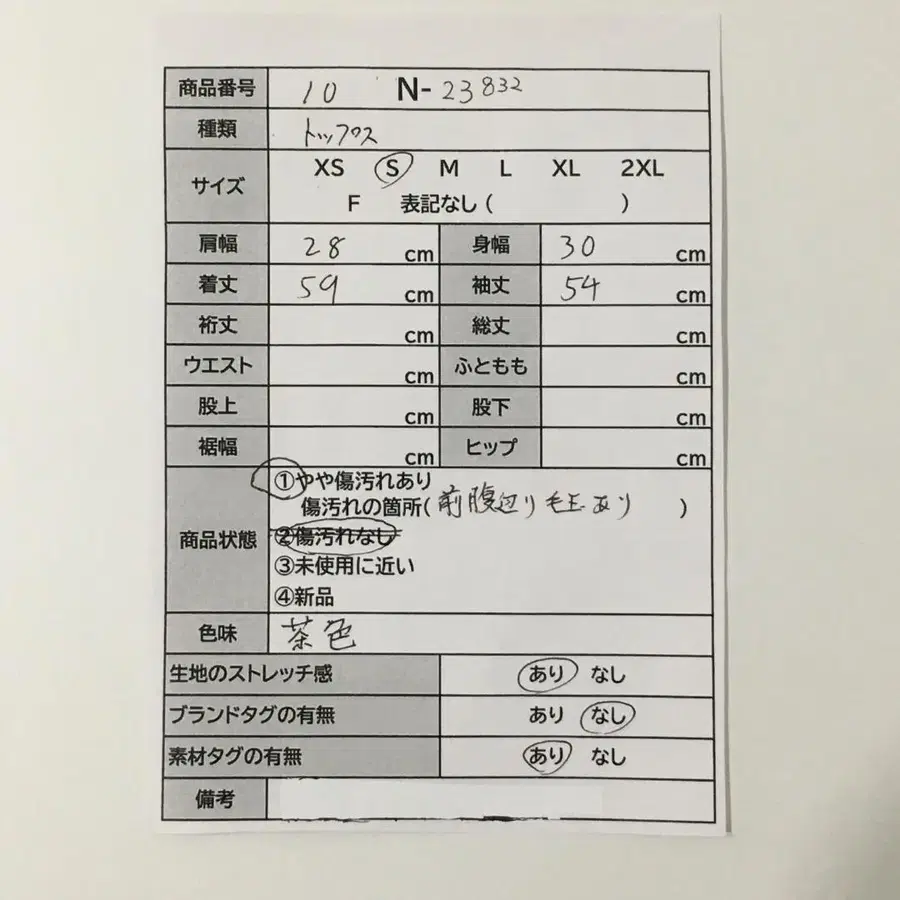 商品番号 10 N-23832
種類 トップス
サイズ XS S M L XL 2XL
F 表記なし ( )
肩幅 28 cm 身幅 30 cm
着丈 59 cm 袖丈 54 cm
裄丈 cm 総丈 cm
ウエスト cm ふともも cm
股上 cm 股下 cm
裾幅 cm ヒップ cm
商品状態 ①やや傷汚れあり
傷汚れの箇所(前腹辺り毛玉あり )
②傷汚れなし
③未使用に近い
④新品
色味 茶色
生地のストレッチ感 あり なし
ブランドタグの有無 あり なし
素材タグの有無 あり なし
備考